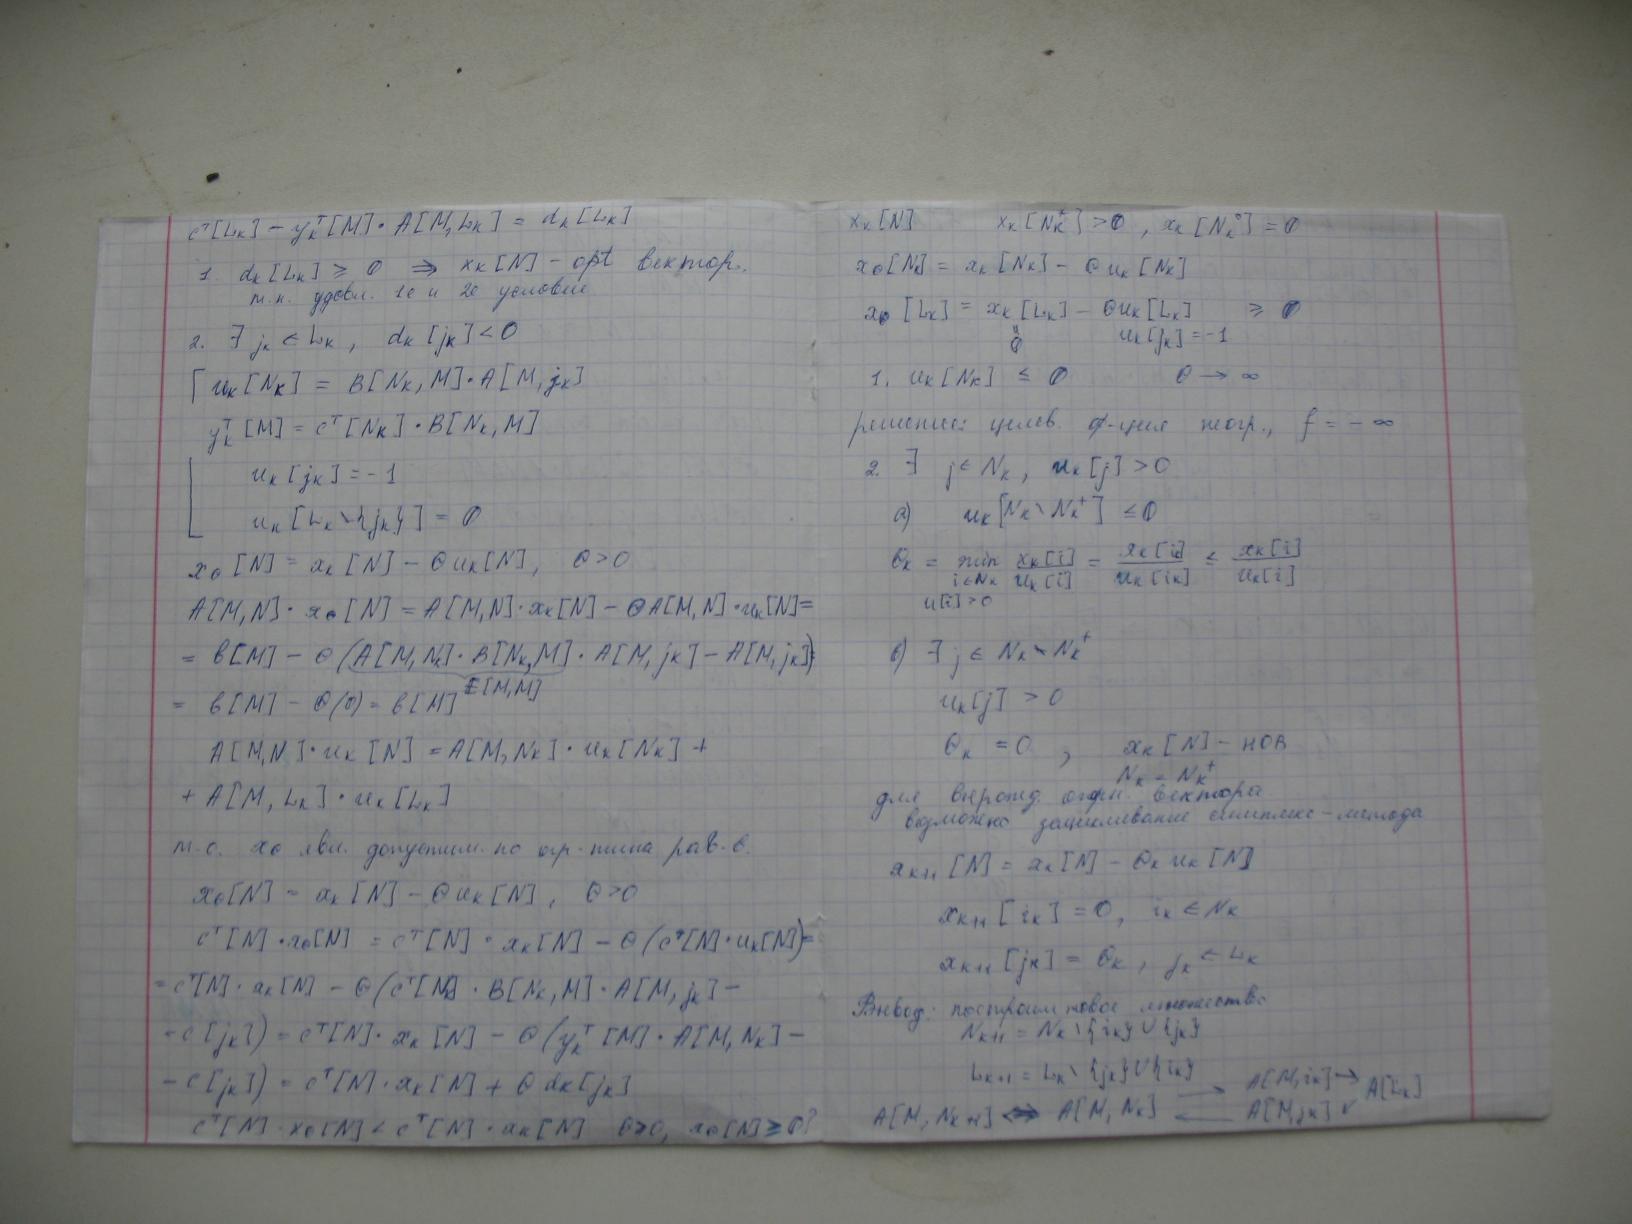 cᵀ[Lₖ] − yₖᵀ[M]·A[M,Lₖ] = dₖ[Lₖ]
1. dₖ[Lₖ] ≥ 0 ⇒ xₖ[N] − opt вектор.
т.к. удовл. 1е и 2е условие
2. ∃ jₖ ∈ Lₖ, dₖ[jₖ] < 0
uₖ[Nₖ] = B[Nₖ,M]·A[M,jₖ]
yₖᵀ[M] = cᵀ[Nₖ]·B[Nₖ,M]
uₖ[jₖ] = −1
uₖ[Lₖ∖{jₖ}] = 0
x_θ[N] = xₖ[N] − θuₖ[N], θ>0
A[M,N]·x_θ[N] = A[M,N]·xₖ[N] − θA[M,N]·uₖ[N] =
= b[M] − θ(A[M,Nₖ]·B[Nₖ,M]·A[M,jₖ] − A[M,jₖ]) =
E[M,M]
= b[M] − θ(0) = b[M]
A[M,N]·uₖ[N] = A[M,Nₖ]·uₖ[Nₖ] +
+ A[M,Lₖ]·uₖ[Lₖ]
т.о. x_θ явл. допустим. по огр. типа рав-в.
x_θ[N] = xₖ[N] − θuₖ[N], θ>0
cᵀ[N]·x_θ[N] = cᵀ[N]·xₖ[N] − θ(cᵀ[N]·uₖ[N]) =
= cᵀ[N]·xₖ[N] − θ(cᵀ[Nₖ]·B[Nₖ,M]·A[M,jₖ] −
− c[jₖ]) = cᵀ[N]·xₖ[N] − θ(yₖᵀ[M]·A[M,Nₖ] −
− c[jₖ]) = cᵀ[N]·xₖ[N] + θdₖ[jₖ]
cᵀ[N]·x_θ[N] < cᵀ[N]·xₖ[N] θ>0, x_θ[N] ≥ 0?
xₖ[N] xₖ[Nₖ⁺] > 0, xₖ[Nₖ⁰] = 0
x_θ[Nₖ] = xₖ[Nₖ] − θuₖ[Nₖ]
x_θ[Lₖ] = xₖ[Lₖ] − θuₖ[Lₖ] ≥ 0
0 uₖ[jₖ] = −1
1. uₖ[Nₖ] ≤ 0 θ → ∞
решение: целев. ф-ция неогр., f = −∞
2. ∃ j ∈ Nₖ, uₖ[j] > 0
а) uₖ[Nₖ∖Nₖ⁺] ≤ 0
θₖ = min xₖ[i]/uₖ[i] = xₖ[iₖ]/uₖ[iₖ] ≤ xₖ[i]/uₖ[i]
i∈Nₖ
u[i]>0
в) ∃ j ∈ Nₖ∖Nₖ⁺
uₖ[j] > 0
θₖ = 0, xₖ[N] − нов
Nₖ = Nₖ⁺
для вырожд. опорн. вектора
возможно зацикливание симплекс-метода
xₖ₊₁[N] = xₖ[N] − θₖuₖ[N]
xₖ₊₁[iₖ] = 0, iₖ ∈ Nₖ
xₖ₊₁[jₖ] = θₖ, jₖ ∈ Lₖ
Вывод: построим новое множество
Nₖ₊₁ = Nₖ∖{iₖ}∪{jₖ}
Lₖ₊₁ = Lₖ∖{jₖ}∪{iₖ}
A[M,Nₖ₊₁] ⇔ A[M,Nₖ] → A[M,iₖ] → A[Lₖ]
← A[M,jₖ] ↙